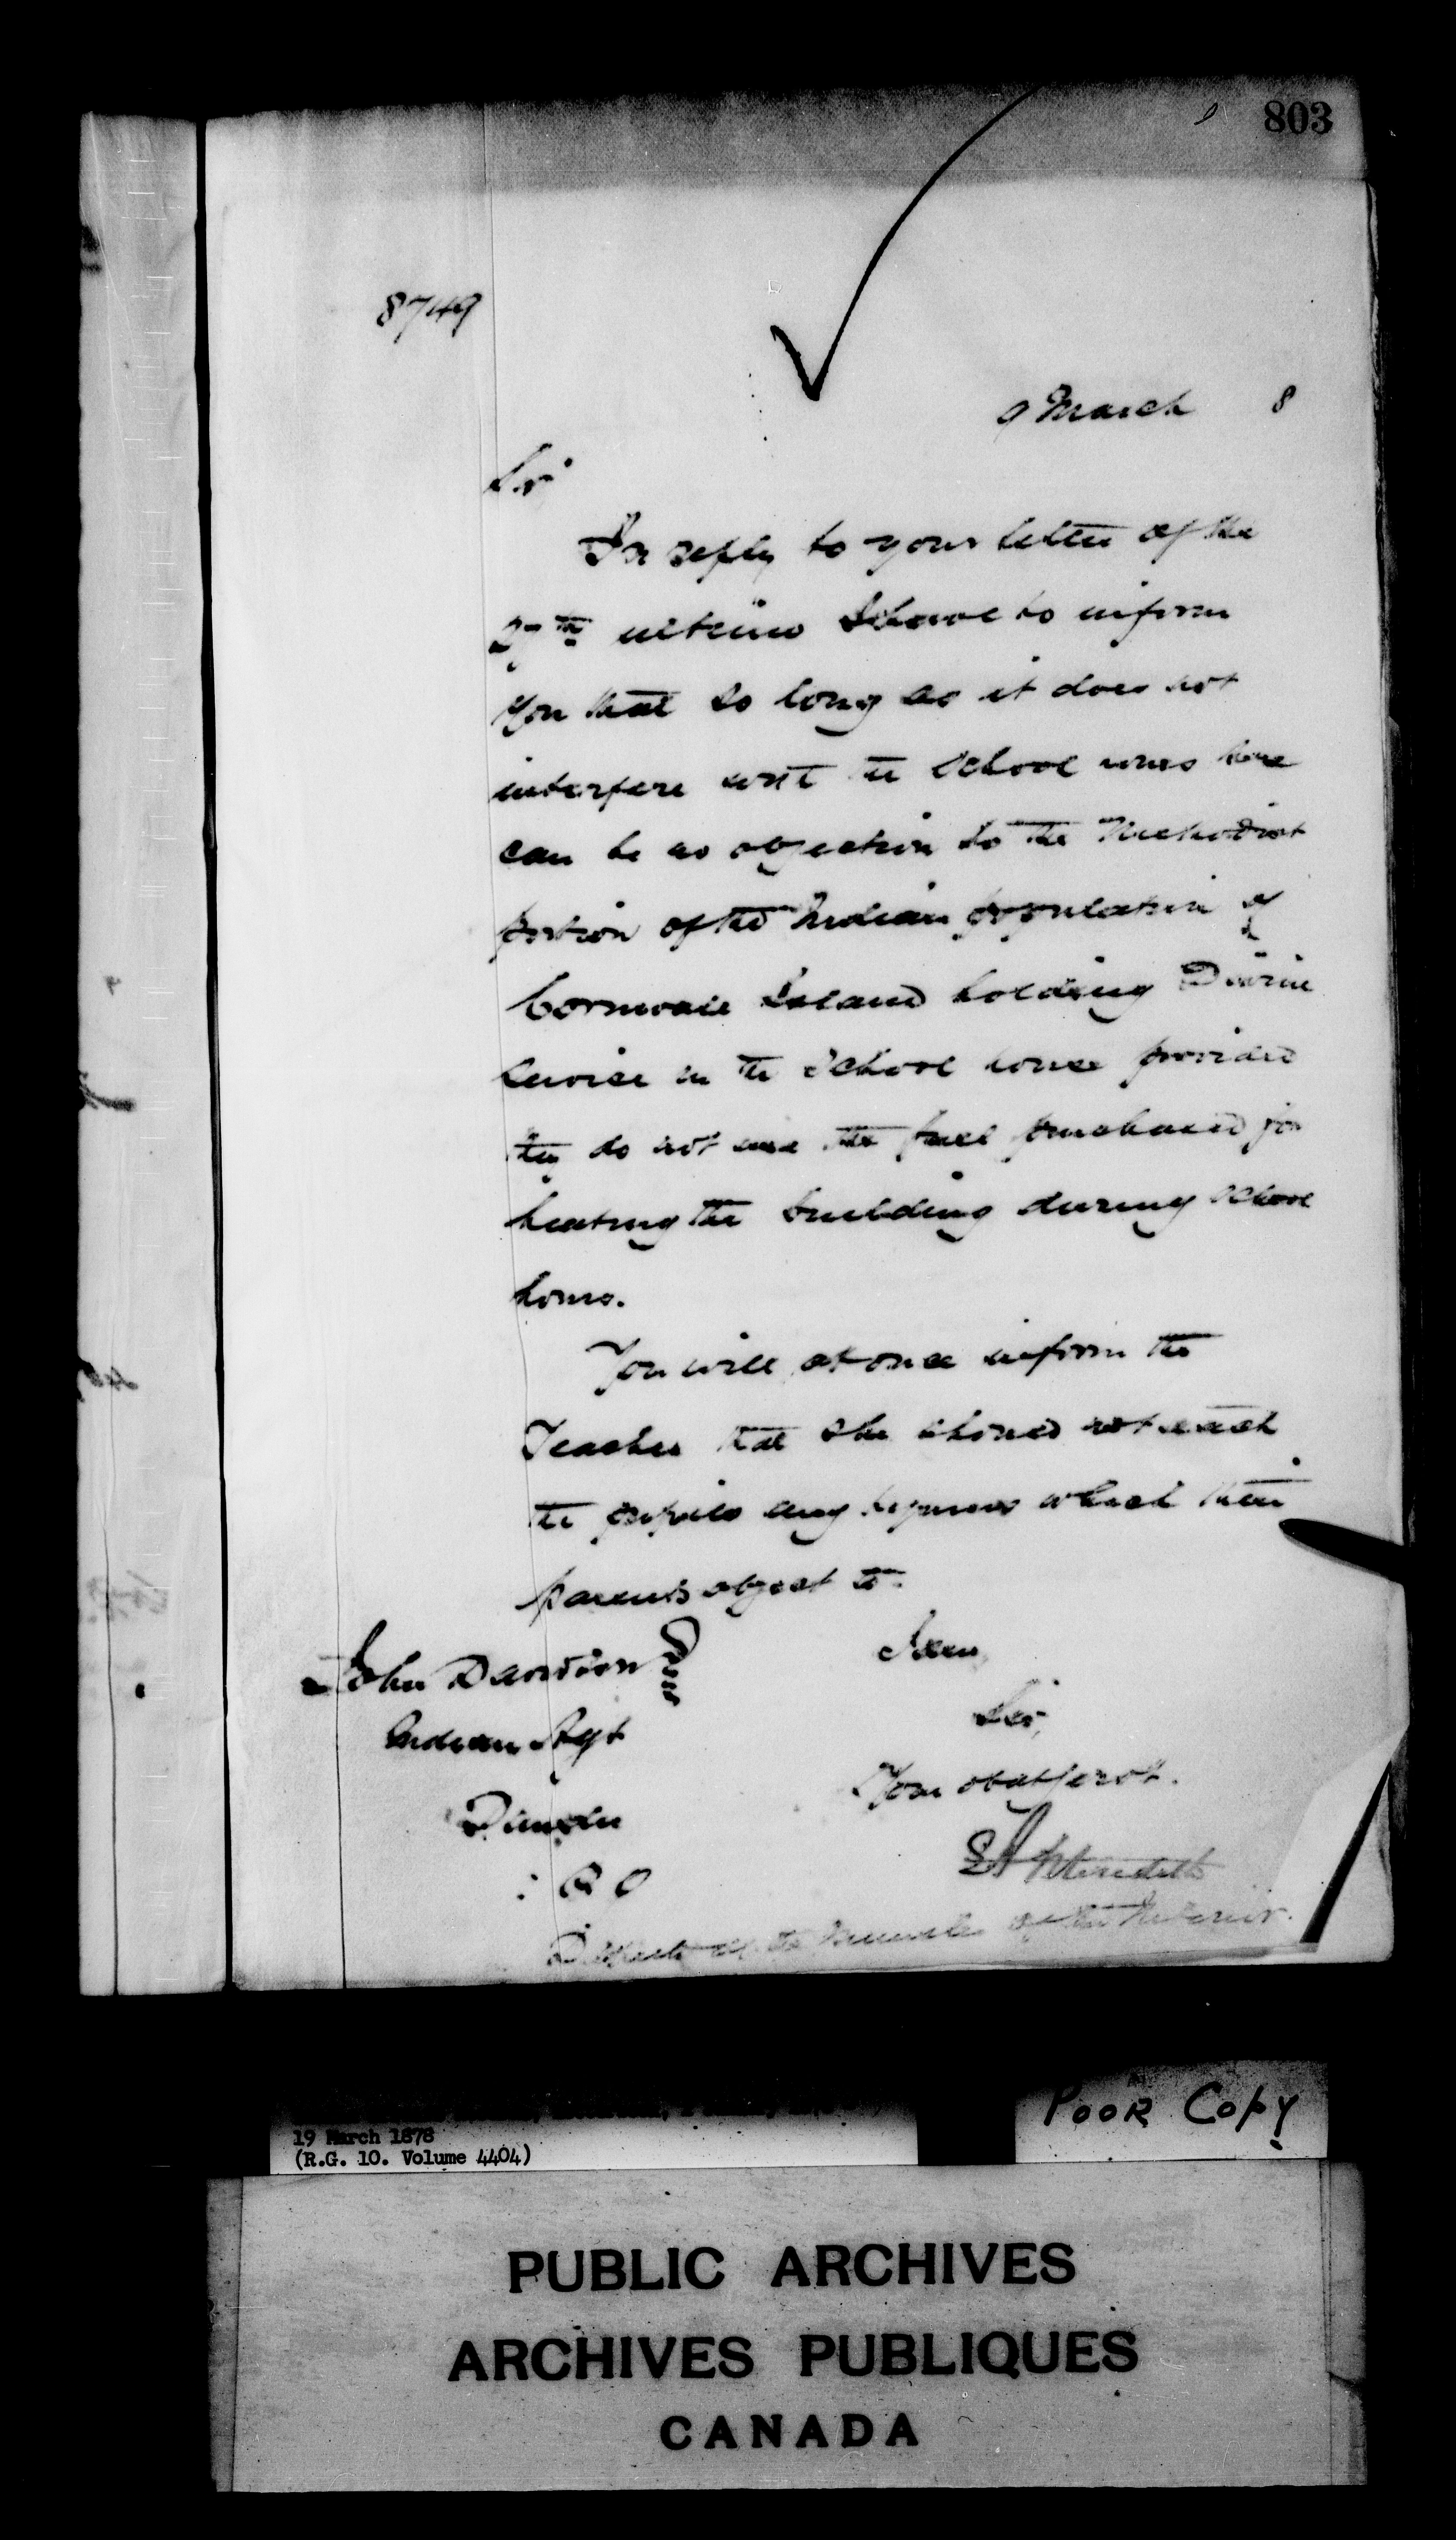 803
8749
9 March 8
Sir
In reply to your letter of the
27th ultimo I have to inform
you that so long as it does not
interfere with the School hours there
can be no objection to the Methodist
portion of the Indian population of
Cornwall Island holding Divine
Service in the School house provided
they do not use the fuel purchased for
heating the building during School
hours.
You will at once inform the
Teacher that she should not teach
the pupils any hymns which their
parents object to.
I am
Sir,
Your obdt servt.
John Davidson
Indian Agt
Dundee
P Q
E A Meredith
Deputy of the Minister of the Interior.
19 March 1878
(R.G. 10. Volume 4404)
POOR Copy
PUBLIC ARCHIVES
ARCHIVES PUBLIQUES
CANADA